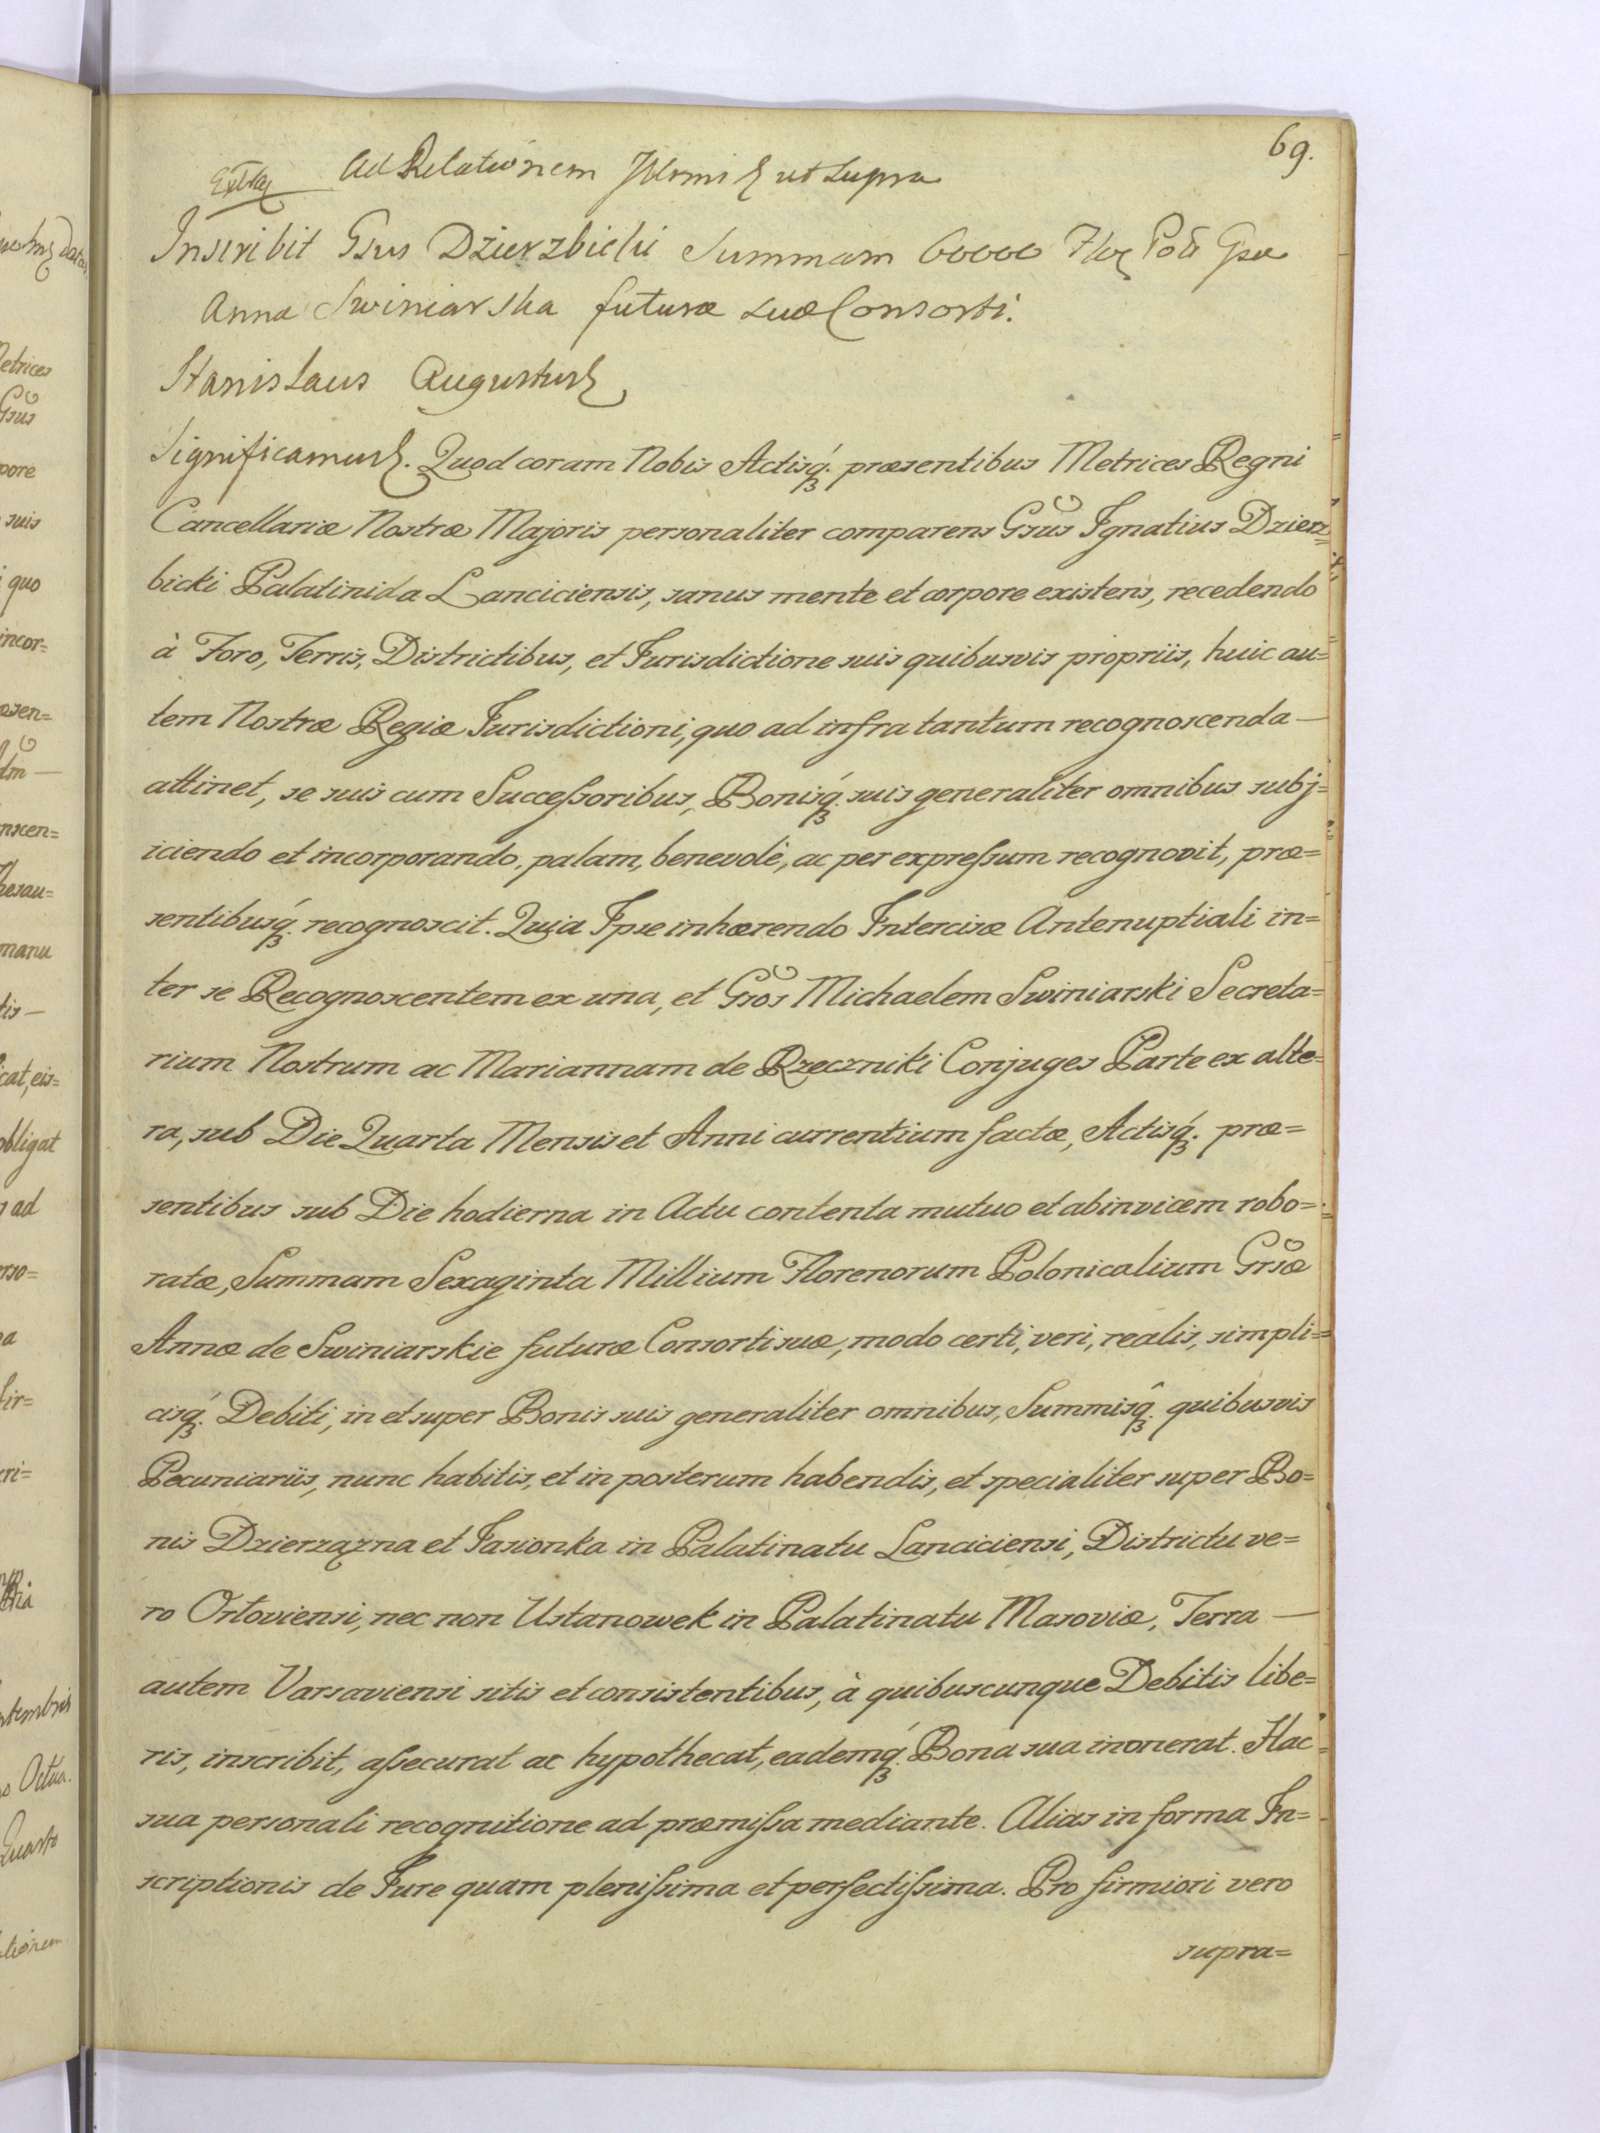 69.
Extra
Ad Relationem Illmi & ut supra
Inscribit Gsus Dzierzbicki Summam 60000 Flor Pol Gsæ
Anna Swiniarska futuræ suæ Consorti.
Stanislaus Augustus &
Significamus &. Quod coram Nobis Actisq́ꝫ præsentibus Metrices Regni
Cancellariæ Nostræ Majoris personaliter comparens Gsus Ignatius Dzierz=
bicki Palatinida Lanciciensis, sanus mente et corpore existens, recedendo
à Foro, Terris, Districtibus, et Jurisdictione suis quibusvis propriis, huic au=
tem Nostræ Regiæ Jurisdictioni, quo ad infra tantum recognoscenda —
attinet, se suis cum Succeſsoribus, Bonisq́ꝫ suis generaliter omnibus subj=
iciendo et incorporando, palam, benevolè, ac per expreſsum recognovit, præ=
sentibusq́ꝫ recognoscit. Quia Ipse inhærendo Intercisæ Antenuptiali in=
ter se Recognoscentem ex una, et Gsos Michaelem Swiniarski Secreta=
rium Nostrum ac Mariannam de Rzeczniki Conjuges Parte ex alte=
ra, sub Die Quarta Mensis et Anni currentium factæ, Actisq́ꝫ præ=
sentibus sub Die hodierna in Actu contenta mutuo et abinvicem robo=
ratæ, Summam Sexaginta Millium Florenorum Polonicalium Grsæ
Annæ de Swiniarskie futuræ Consorti suæ, modo certi, veri, realis, simpli=
cisq́ꝫ Debiti, in et super Bonis suis generaliter omnibus, Summisq̂ꝫ quibusvis
Pecuniariis, nunc habitis, et in posterum habendis, et specialiter super Bo=
nis Dzierzązna et Jasionka in Palatinatu Lanciciensi, Districtu ve=
ro Orłoviensi, nec non Ustanowek in Palatinatu Masoviæ, Terra —
autem Varsaviensi sitis et consistentibus, à quibuscunque Debitis libe=
ris, inscribit, aſsecurat ac hypothecat, eademq́ꝫ Bona sua inonerat. Hac
sua personali recognitione ad præmiſsa mediante. Alias in forma In=
scriptionis de Jure quam pleniſsima et perfectiſsima. Pro firmiori vero
supra=